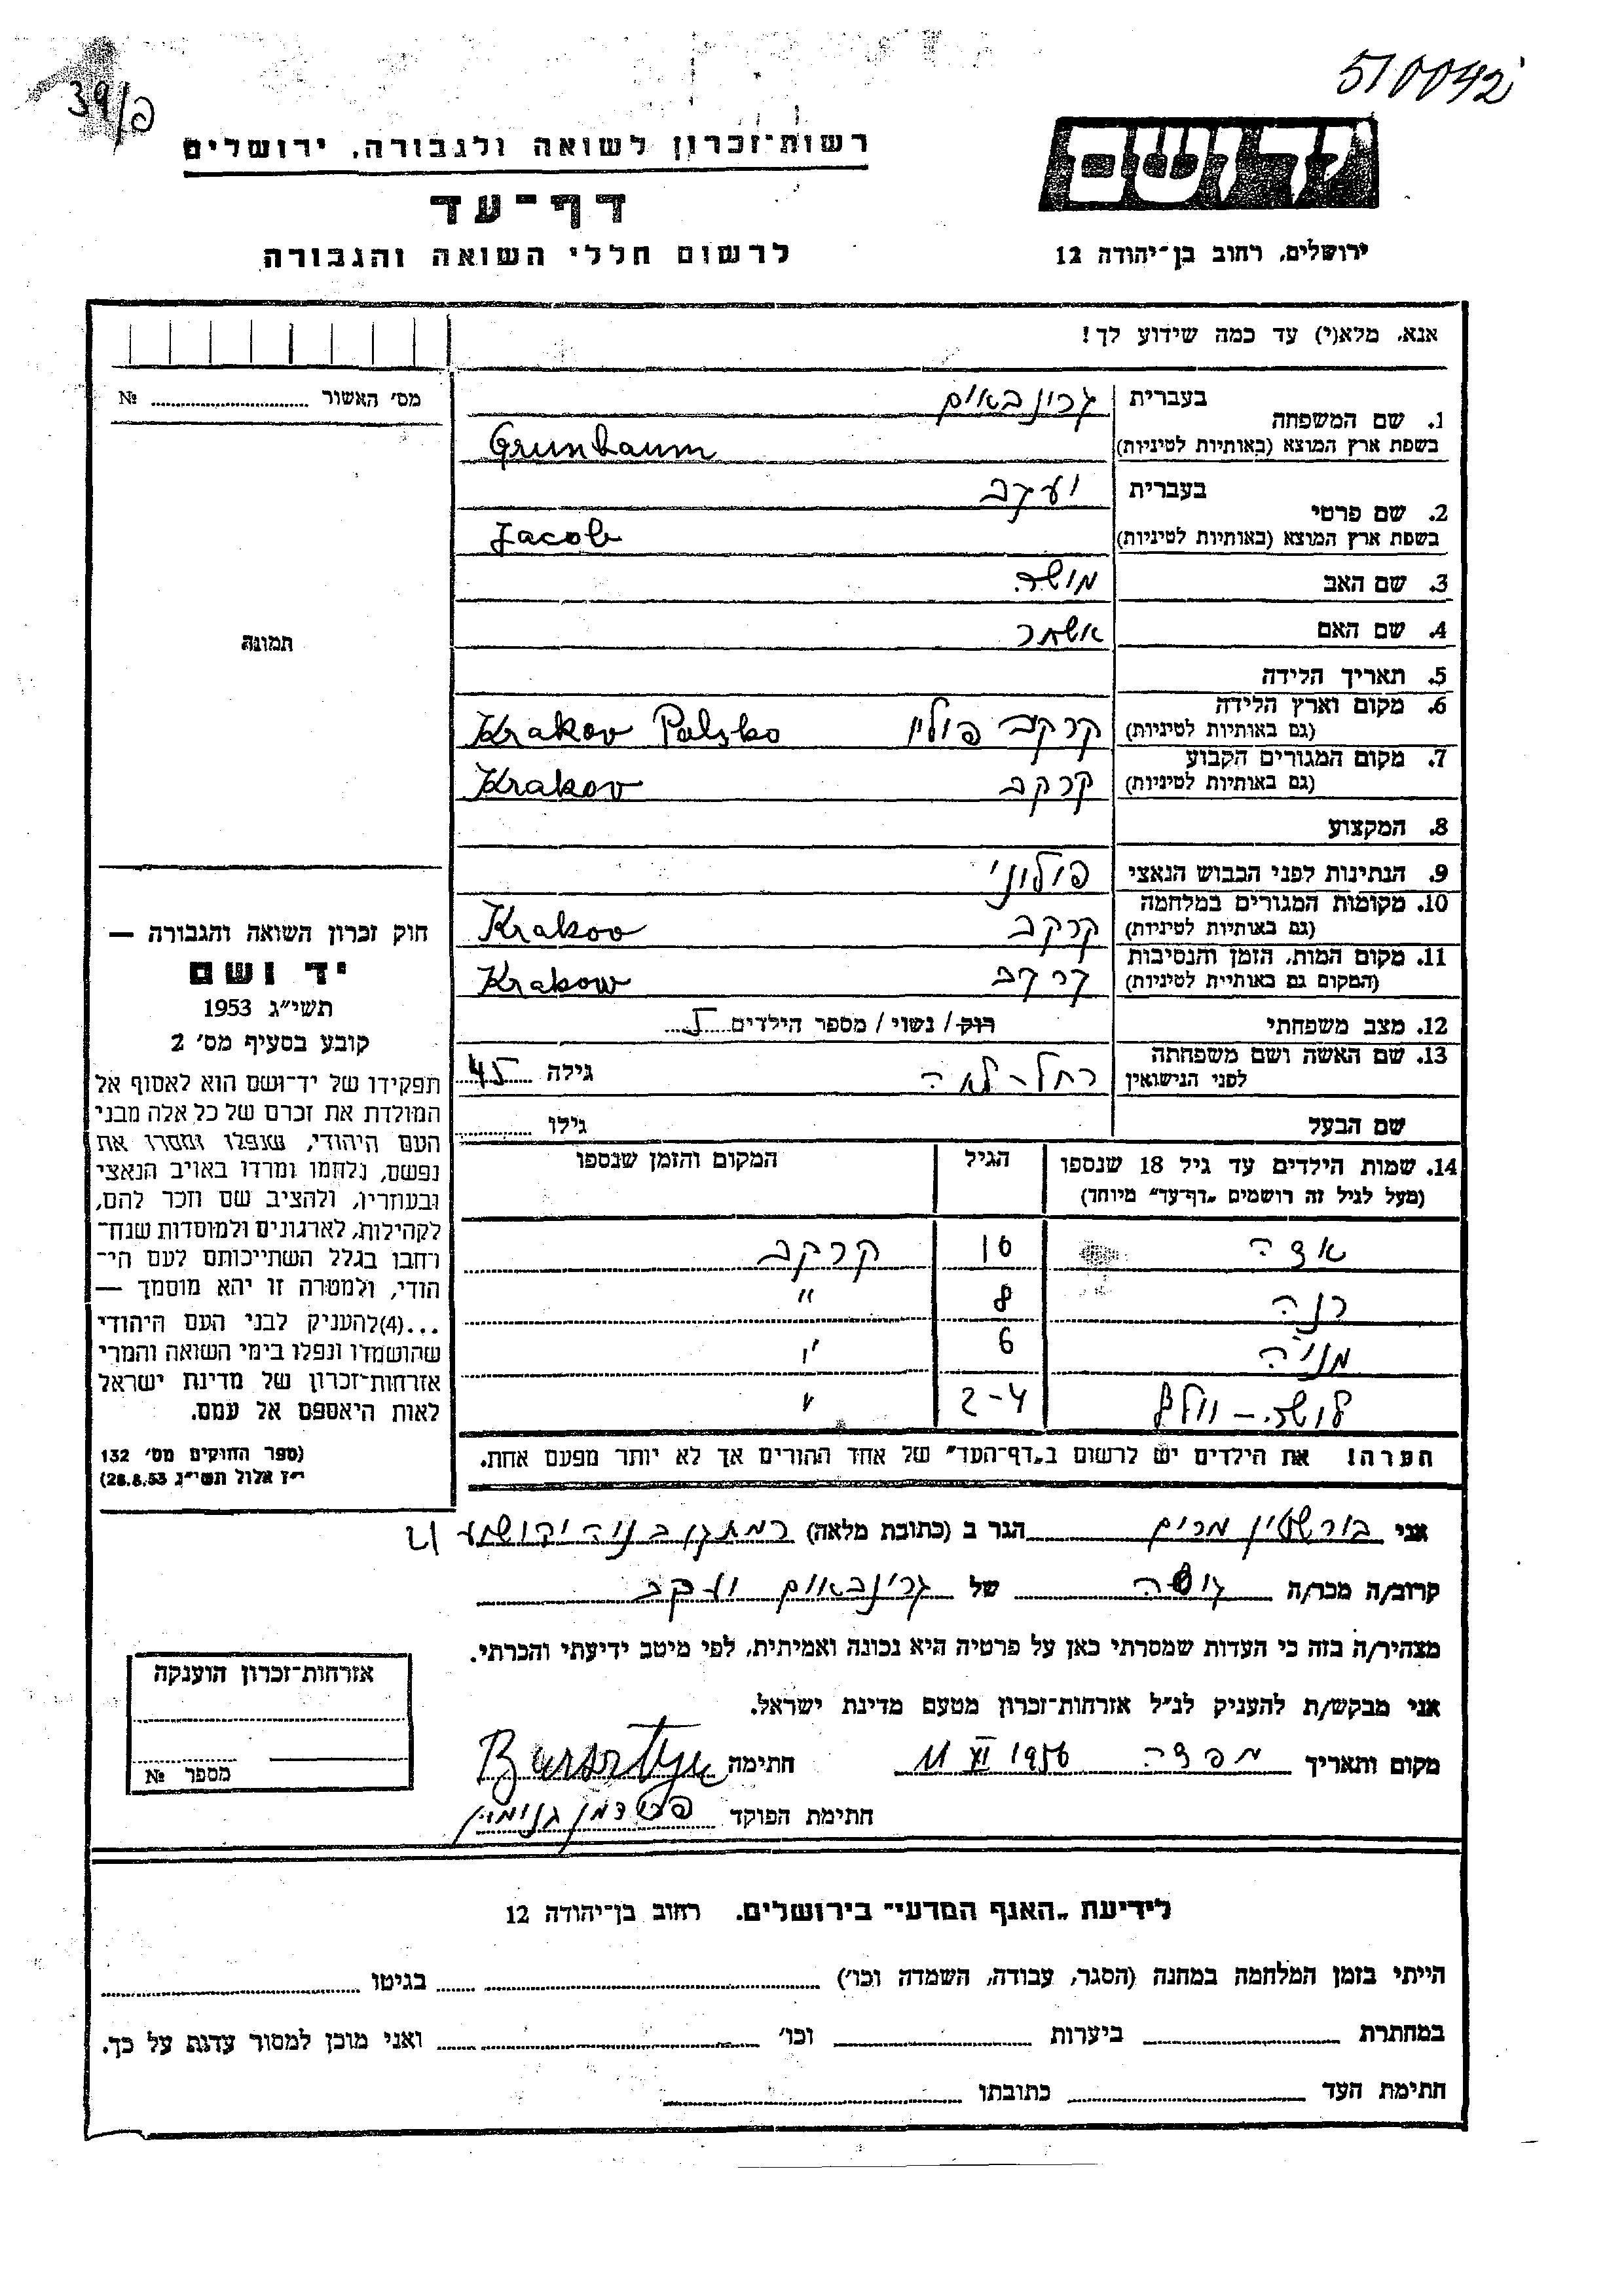 510042
39/פ
יד ושם
רשות־זכרון לשואה ולגבורה, ירושלים
דף־עד
לרשום חללי השואה והגבורה
ירושלים, רחוב בן־יהודה 12
אנא, מלא(י) עד כמה שידוע לך!
מס' האשור № 
1. שם המשפחה
בעברית גרונבאום
בשפת ארץ המוצא (באותיות לטיניות) Grunbaum
2. שם פרטי
בעברית יעקב
בשפת ארץ המוצא (באותיות לטיניות) Jacob
3. שם האב משה
4. שם האם אסתר
5. תאריך הלידה
6. מקום וארץ הלידה
(גם באותיות לטיניות) קרקב פולין Krakov Polsko
7. מקום המגורים הקבוע
(גם באותיות לטיניות) קרקב Krakov
8. המקצוע
9. הנתינות לפני הכבוש הנאצי פולוני
10. מקומות המגורים במלחמה
(גם באותיות לטיניות) קרקב Krakov
11. מקום המות, הזמן והנסיבות
(המקום גם באותיית לטיניות) קרקב Krakow
12. מצב משפחתי רוק / נשוי / מספר הילדים 5
13. שם האשה ושם משפחתה
לפני הנישואין רחל - לאה גילה 45
שם הבעל גילו
14. שמות הילדים עד גיל 18 שנספו הגיל המקום והזמן שנספו
(מעל לגיל זה רושמים "דף־עד" מיוחד)
10 קרקב
8 "
מניה 6 "
2-4 "
הערה! את הילדים יש לרשום ב"דף־העד" של אחד ההורים אך לא יותר מפעם אחת.
תמונה
חוק זכרון השואה והגבורה —
יד ושם
תשי"ג 1953
קובע בסעיף מס' 2
תפקידו של יד־ושם הוא לאסוף אל
המולדת את זכרם של כל אלה מבני
העם היהודי, שנפלו ומסרו את
נפשם, נלחמו ומרדו באויב הנאצי
ובעוזריו, ולהציב שם וזכר להם,
לקהילות, לארגונים ולמוסדות שנח־
רבו בגלל השתייכותם לעם הי־
הודי, ולמטרה זו יהא מוסמך —
...(4)להעניק לבני העם היהודי
שהושמדו ונפלו בימי השואה והמרי
אזרחות־זכרון של מדינת ישראל
לאות היאספם אל עמם.
(ספר החוקים מס' 132
י"ז אלול תשי"ג 28.8.53)
אני בורשטין מרים הגר ב (כתובת מלאה) רמת גן
קרוב/ה מכר/ה של גרינבאום יעקב
מצהיר/ה בזה כי העדות שמסרתי כאן על פרטיה היא נכונה ואמיתית, לפי מיטב ידיעתי והכרתי.
אני מבקש/ת להעניק לנ"ל אזרחות־זכרון מטעם מדינת ישראל.
מקום ותאריך 11 XI 1956 חתימה
חתימת הפוקד
אזרחות־זכרון הוענקה
מספר №
לידיעת "האגף המדעי" בירושלים. רחוב בן־יהודה 12
הייתי בזמן המלחמה במחנה (הסגר, עבודה, השמדה וכו') בגיטו
במחתרת ביערות וכו' ואני מוכן למסור עדות על כך.
חתימת העד כתובתו